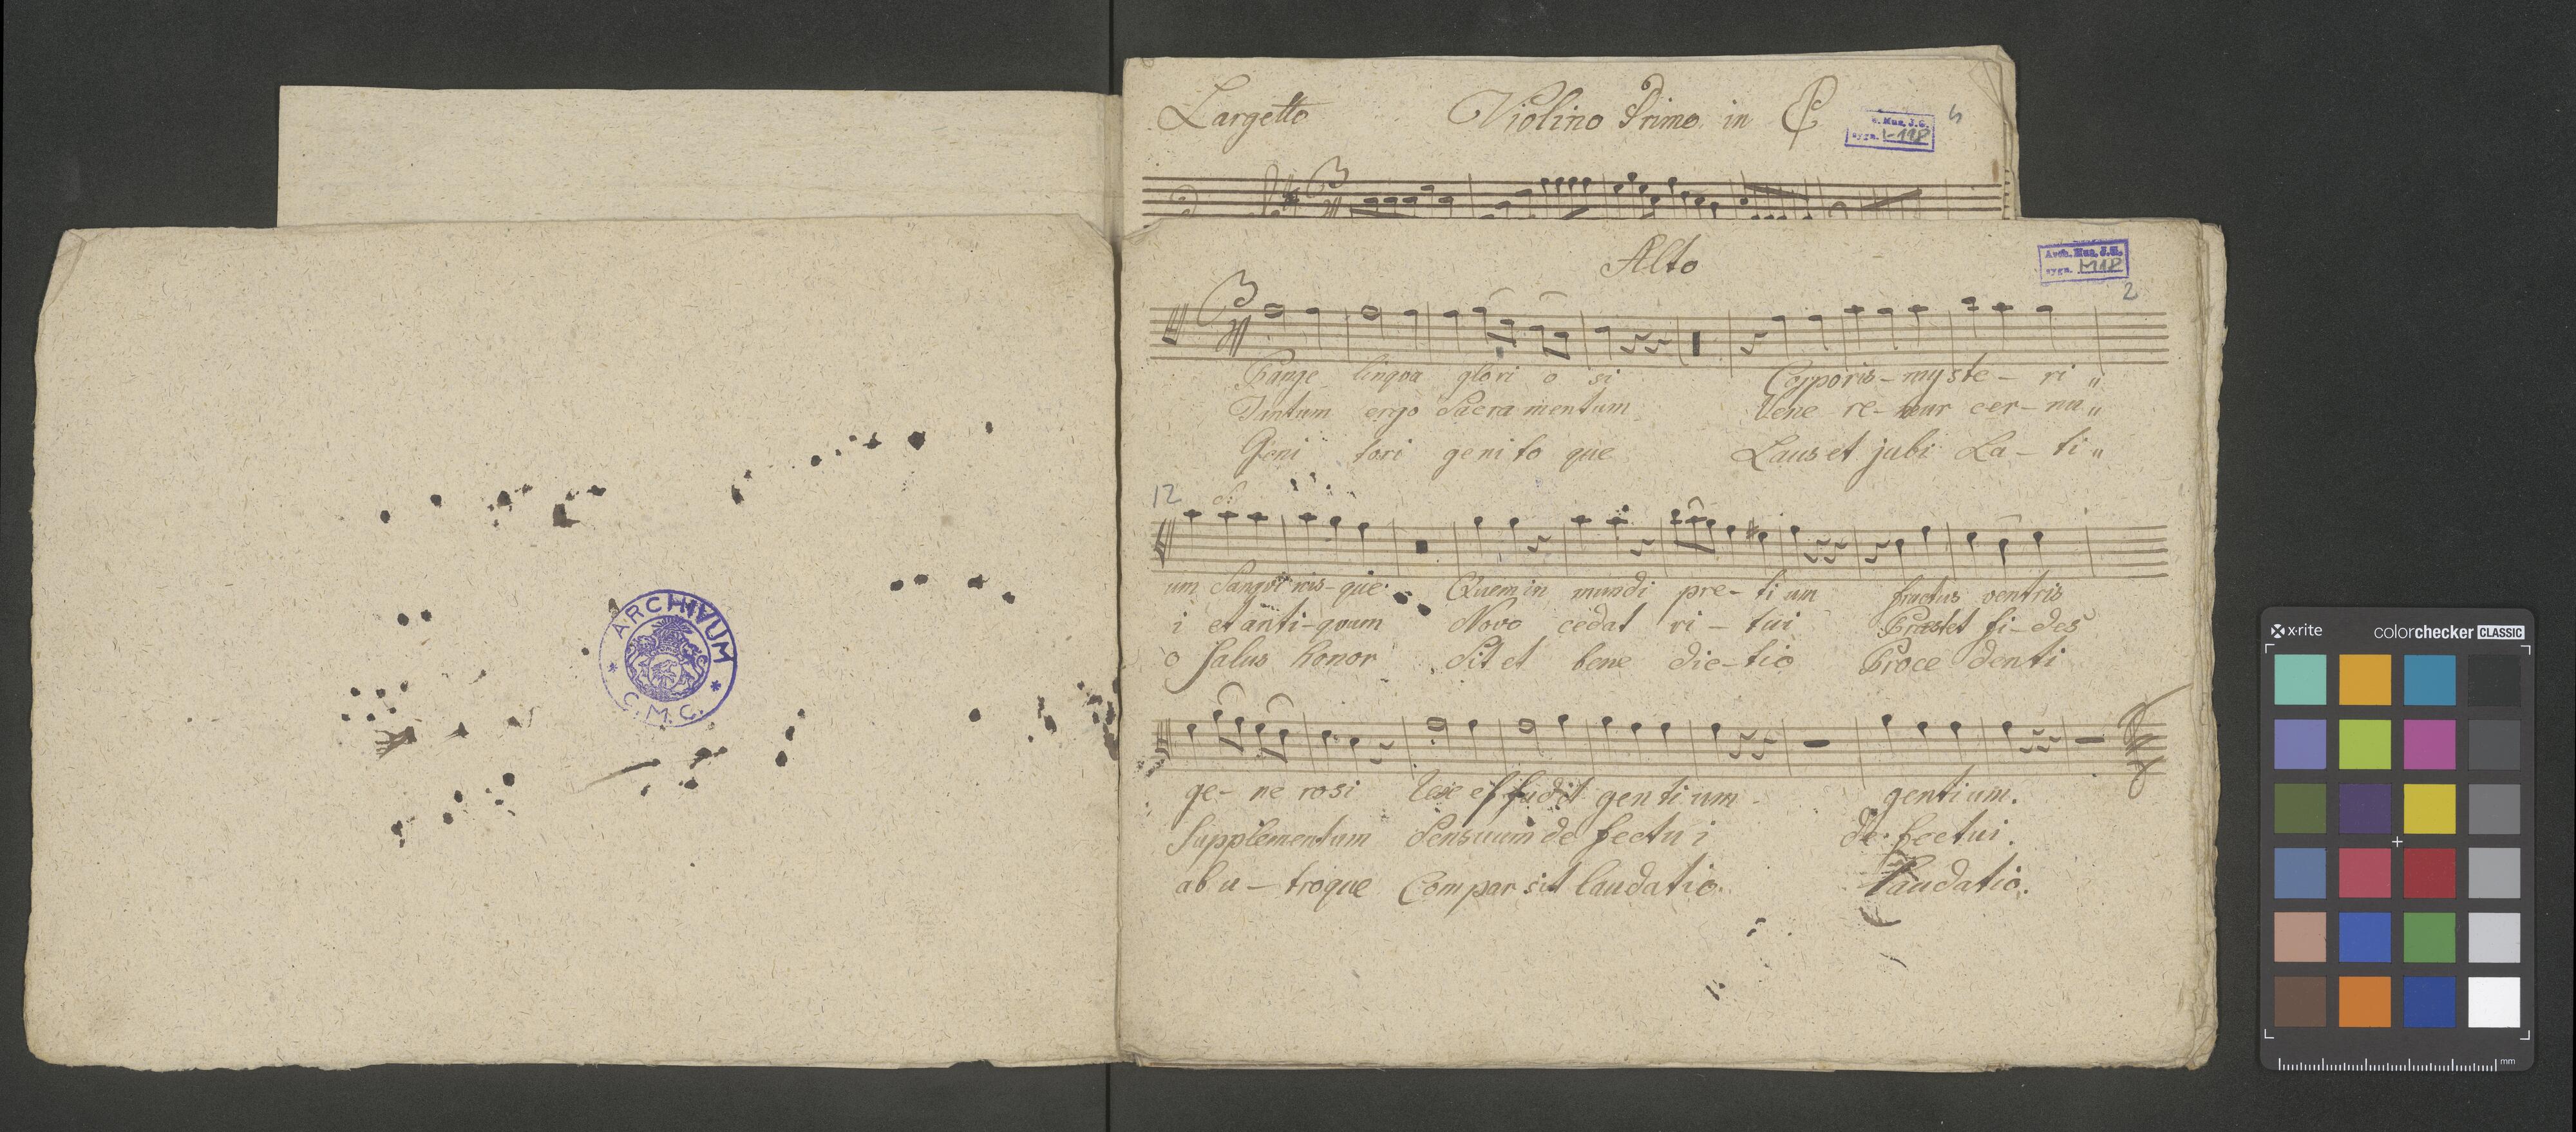 ARCHIVUM
C. M. C.
Largetto Violino Primo in C
Mus. J.G.
sygn. I-118
4
Alto
Arch. Mus. J.G.
sygn. I-118
2
Pange lingva glori o si Corporis - myste - ri „
Tantum ergo Sacra mentum Vene re - mur cer - nu „
Geni tori geni to que Laus et jubi La - ti „
12
um Sangvi nis - que. Quem in mundi pre - ti um fructus ventris
i et anti - qvum Novo cedat ri - tui Præstet fi - des
o Salus honor Sit et bene dic - tio Proce denti
ge - ne rosi Rex ef fudit gen ti um gentium.
Supplementum Sensuum de fectu i de fectui.
ab u - troque Compar sit laudatio. Laudatio.
x-rite colorchecker CLASSIC
mm